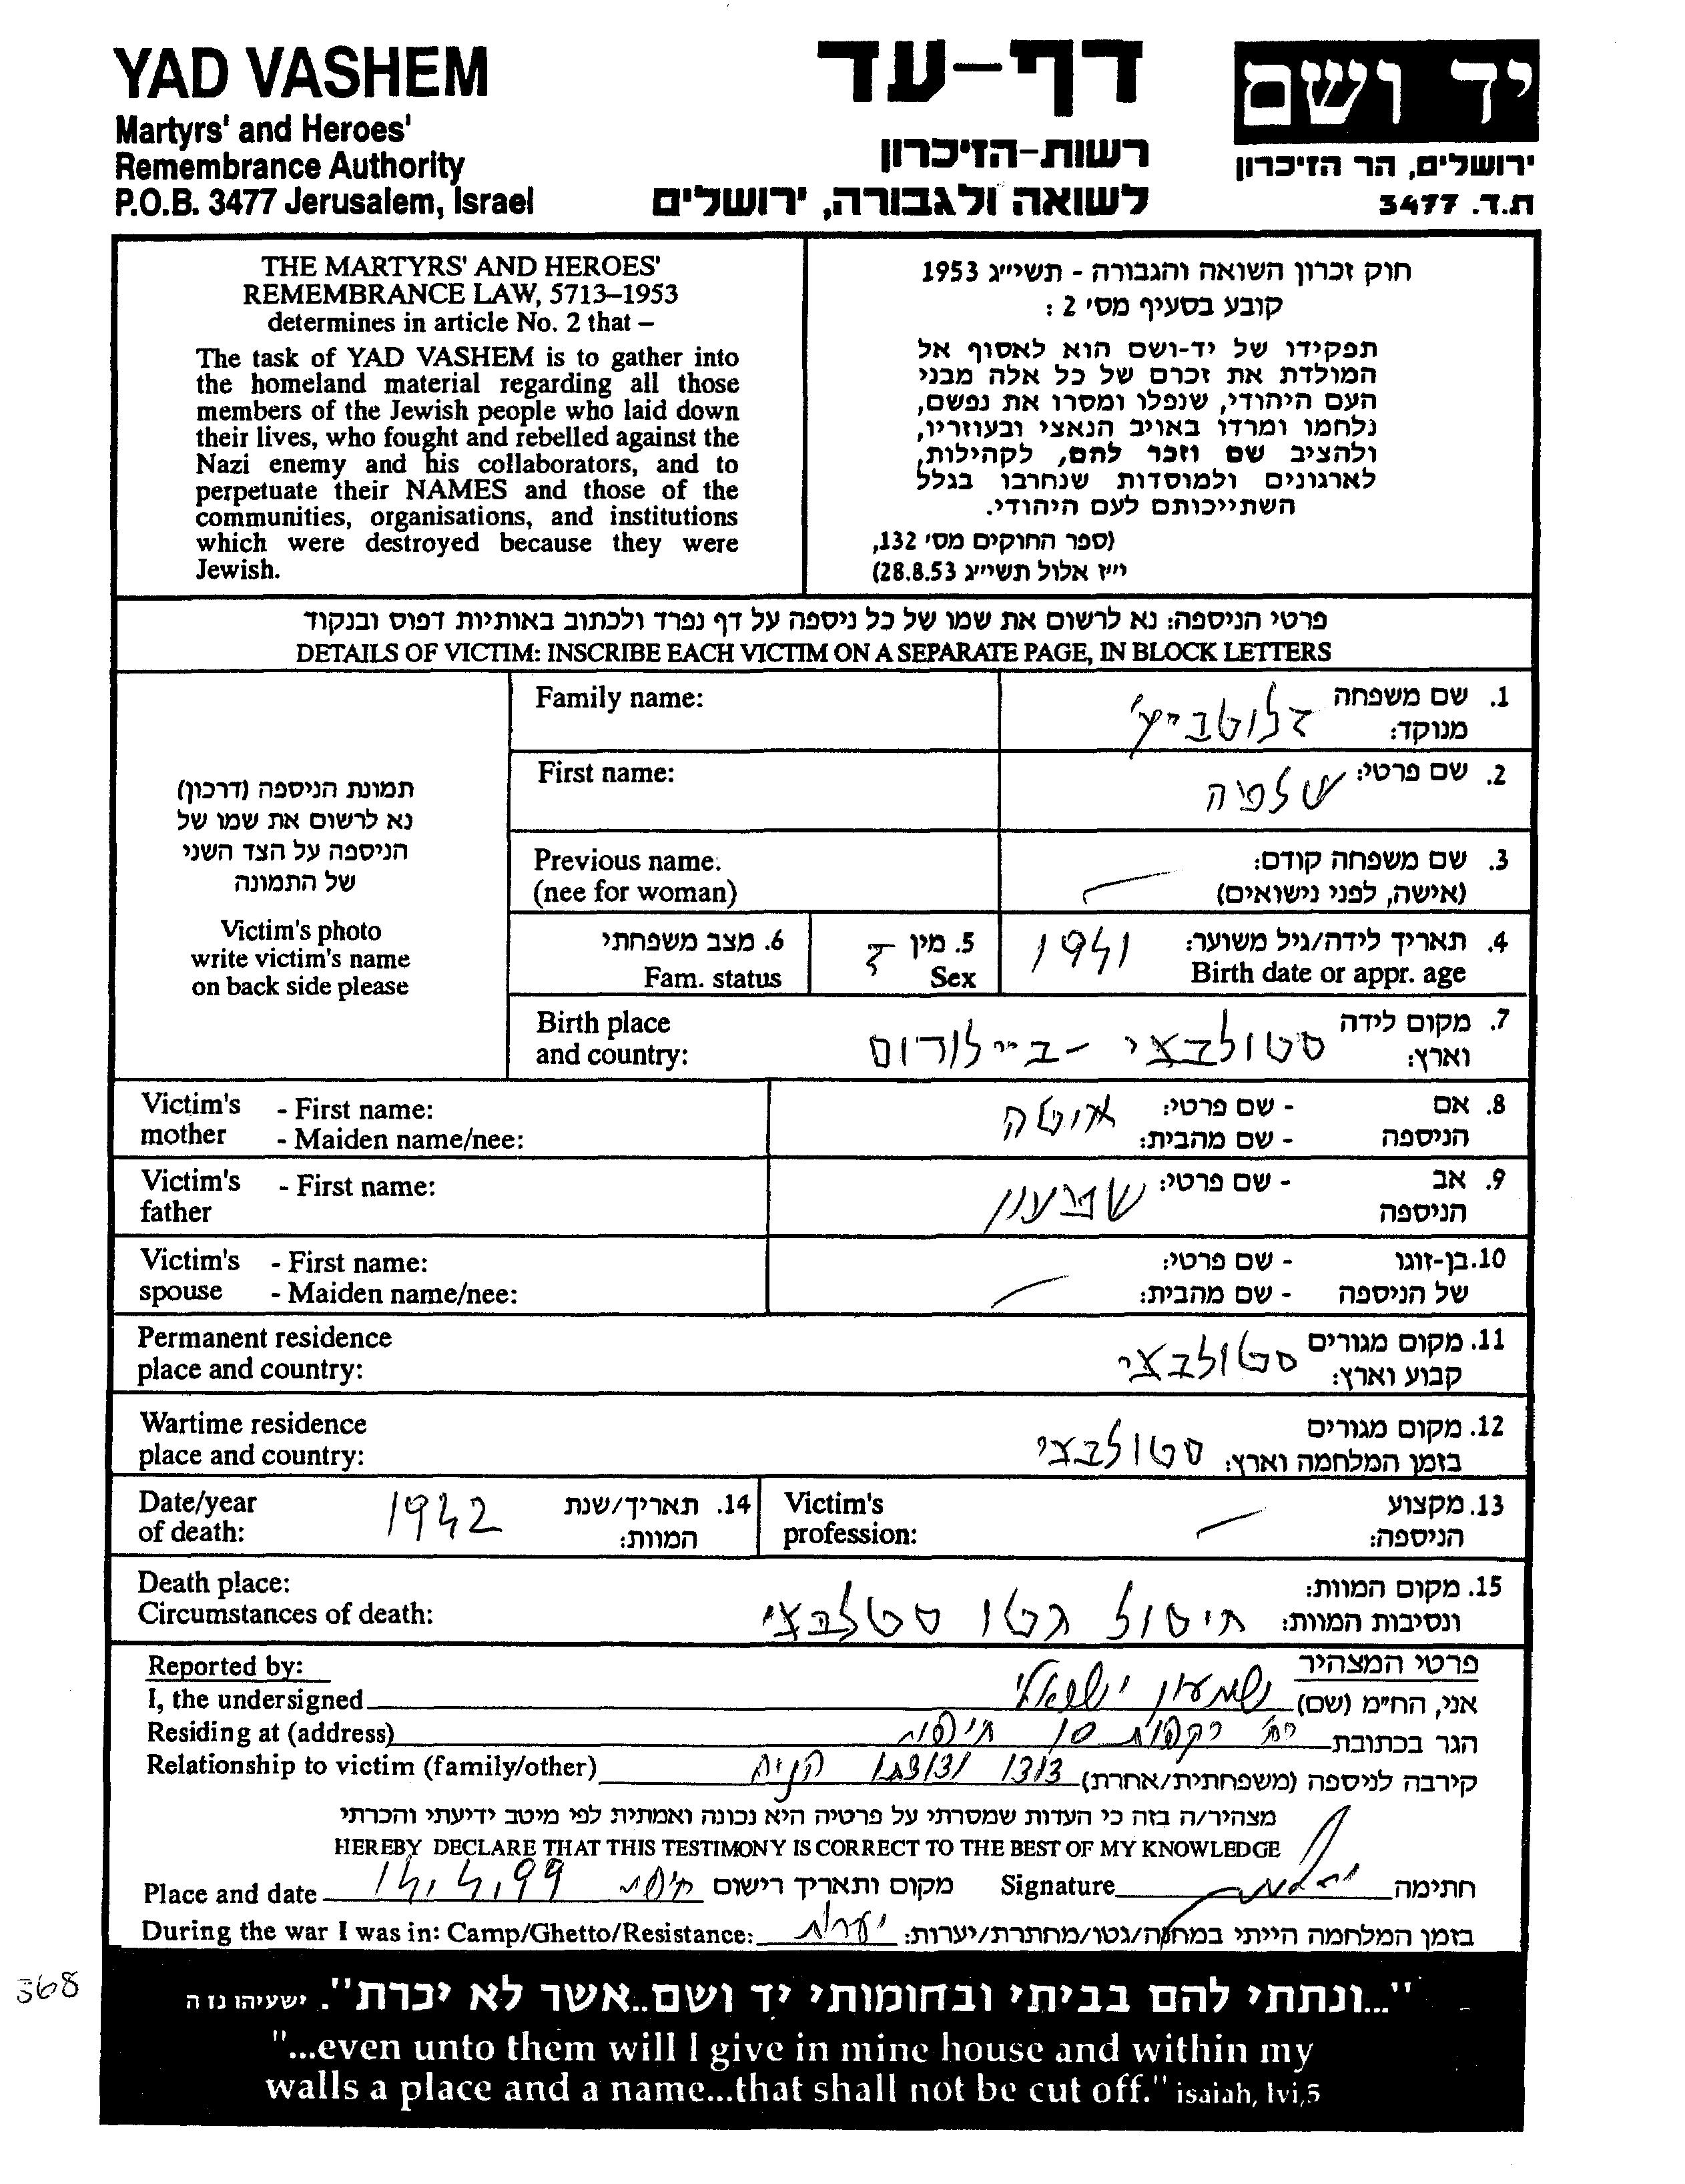 YAD VASHEM
Martyrs' and Heroes'
Remembrance Authority
P.O.B. 3477 Jerusalem, Israel
דף-עד
רשות-הזיכרון
לשואה ולגבורה, ירושלים
יד ושם
ירושלים, הר הזיכרון
ת.ד. 3477
THE MARTYRS' AND HEROES'
REMEMBRANCE LAW, 5713–1953
determines in article No. 2 that –
The task of YAD VASHEM is to gather into
the homeland material regarding all those
members of the Jewish people who laid down
their lives, who fought and rebelled against the
Nazi enemy and his collaborators, and to
perpetuate their NAMES and those of the
communities, organisations, and institutions
which were destroyed because they were
Jewish.
חוק זכרון השואה והגבורה - תשי״ג 1953
קובע בסעיף מס׳ 2 :
תפקידו של יד-ושם הוא לאסוף אל
המולדת את זכרם של כל אלה מבני
העם היהודי, שנפלו ומסרו את נפשם,
נלחמו ומרדו באויב הנאצי ובעוזריו,
ולהציב שם וזכר להם, לקהילות,
לארגונים ולמוסדות שנחרבו בגלל
השתייכותם לעם היהודי.
(ספר החוקים מס׳ 132,
י״ז אלול תשי״ג 28.8.53)
פרטי הניספה: נא לרשום את שמו של כל ניספה על דף נפרד ולכתוב באותיות דפוס ובנקוד
DETAILS OF VICTIM: INSCRIBE EACH VICTIM ON A SEPARATE PAGE, IN BLOCK LETTERS
תמונת הניספה (דרכון)
נא לרשום את שמו של
הניספה על הצד השני
של התמונה
Victim's photo
write victim's name
on back side please
Family name:
1. שם משפחה
מנוקד:
First name:
2. שם פרטי:
Previous name.
(nee for woman)
3. שם משפחה קודם:
(אישה, לפני נישואים)
4. תאריך לידה/גיל משוער: 1941
Birth date or appr. age
5. מין ז
Sex
6. מצב משפחתי
Fam. status
Birth place
and country:
7. מקום לידה
וארץ: סטולבצי - ביילורוס
Victim's - First name:
mother - Maiden name/nee:
8. אם - שם פרטי:
הניספה - שם מהבית:
Victim's - First name:
father
9. אב - שם פרטי: שמעון
הניספה
Victim's - First name:
spouse - Maiden name/nee:
10. בן-זוגו - שם פרטי:
של הניספה - שם מהבית:
Permanent residence
place and country:
11. מקום מגורים
קבוע וארץ: סטולבצי
Wartime residence
place and country:
12. מקום מגורים
בזמן המלחמה וארץ: סטולבצי
Date/year
of death:
14. תאריך/שנת
המוות: 1942
Victim's
profession:
13. מקצוע
הניספה:
Death place:
Circumstances of death:
15. מקום המוות:
ונסיבות המוות: חיסול גטו סטלבצי
Reported by:
פרטי המצהיר
I, the undersigned
אני, הח״מ (שם) שמעון ישראלי
Residing at (address)
הגר בכתובת 10 חיפה
Relationship to victim (family/other)
קירבה לניספה (משפחתית/אחרת)
מצהיר/ה בזה כי העדות שמסרתי על פרטיה היא נכונה ואמתית לפי מיטב ידיעתי והכרתי
HEREBY DECLARE THAT THIS TESTIMONY IS CORRECT TO THE BEST OF MY KNOWLEDGE
Place and date 14.4.99 חיפה מקום ותאריך רישום Signature חתימה
During the war I was in: Camp/Ghetto/Resistance: יערות בזמן המלחמה הייתי במחנה/גטו/מחתרת/יערות:
368
"...ונתתי להם בביתי ובחומותי יד ושם..אשר לא יכרת". ישעיהו נו ה
"...even unto them will I give in mine house and within my
walls a place and a name...that shall not be cut off." isaiah, lvi,5